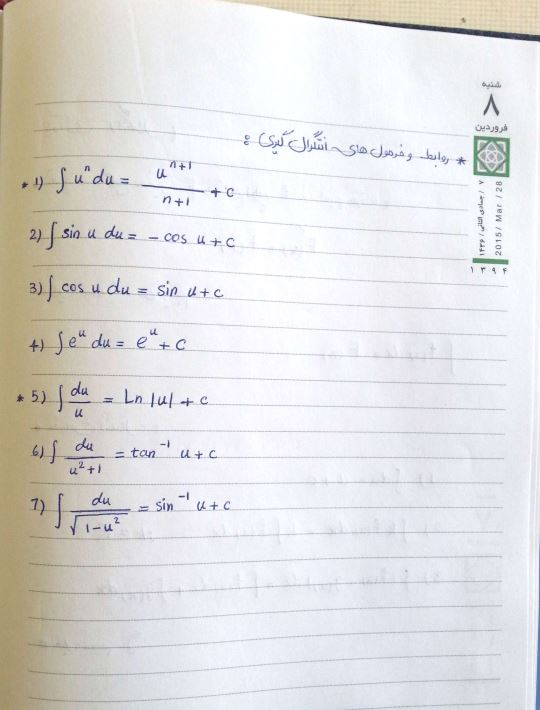 شنبه
۸
فروردین
۷ / جمادی الثانی / ۱۴۳۶
2015 / Mar / 28
۱۳۹۴
* روابط و فرمول های انتگرال گیری :
* 1) ∫ uⁿ du = uⁿ⁺¹ / n+1 + c
2) ∫ sin u du = - cos u + c
3) ∫ cos u du = sin u + c
4) ∫ eᵘ du = eᵘ + c
* 5) ∫ du / u = Ln |u| + c
6) ∫ du / u²+1 = tan⁻¹ u + c
7) ∫ du / √(1-u²) = sin⁻¹ u + c